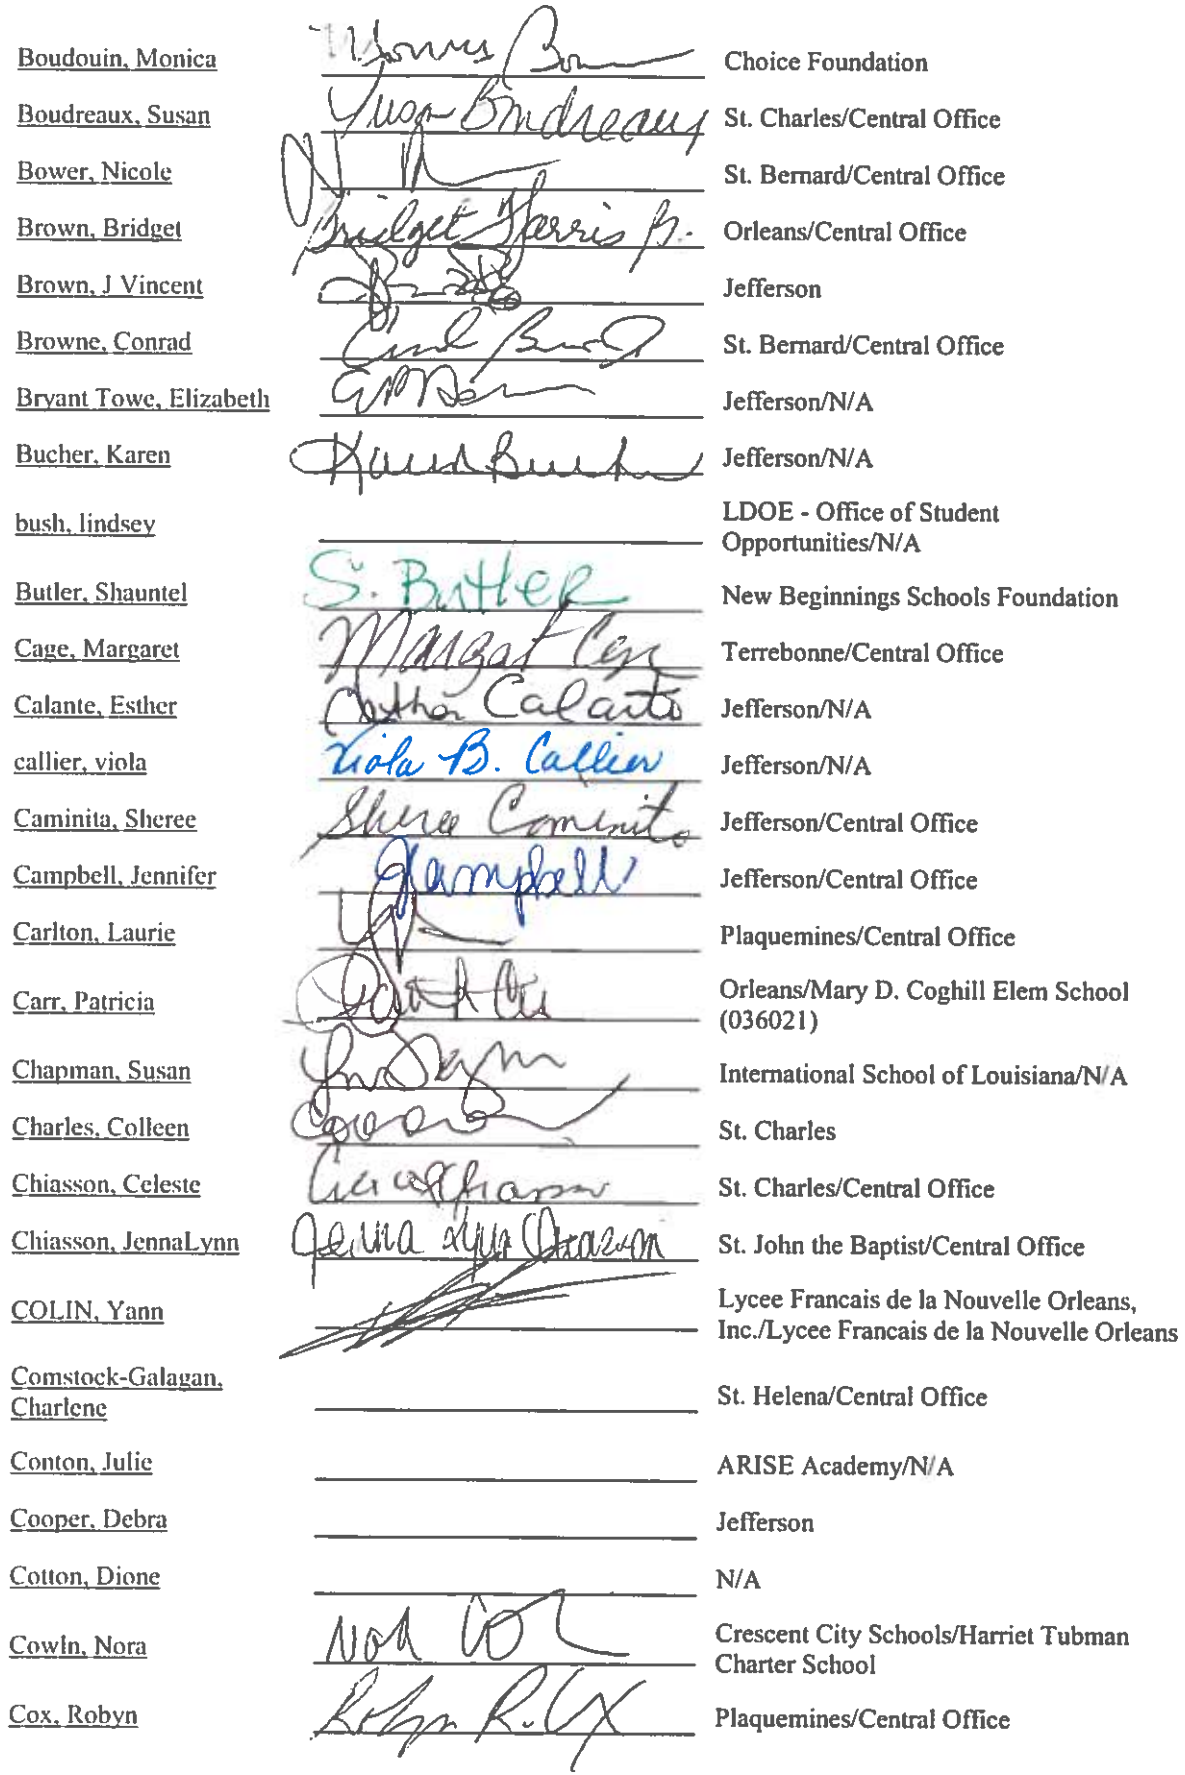 Boudouin, Monica Choice Foundation
Boudreaux, Susan Susan Boudreaux St. Charles/Central Office
Bower, Nicole St. Bernard/Central Office
Brown, Bridget Bridget Harris B. Orleans/Central Office
Brown, J Vincent Jefferson
Browne, Conrad St. Bernard/Central Office
Bryant Towe, Elizabeth Jefferson/N/A
Bucher, Karen Karen Bucher Jefferson/N/A
bush, lindsey LDOE - Office of Student
Opportunities/N/A
Butler, Shauntel S. Butler New Beginnings Schools Foundation
Cage, Margaret Margaret Cage Terrebonne/Central Office
Calante, Esther Esther Calante Jefferson/N/A
callier, viola Viola B. Callier Jefferson/N/A
Caminita, Sheree Sheree Caminita Jefferson/Central Office
Campbell, Jennifer JCampbell Jefferson/Central Office
Carlton, Laurie Plaquemines/Central Office
Carr, Patricia Orleans/Mary D. Coghill Elem School
(036021)
Chapman, Susan International School of Louisiana/N/A
Charles, Colleen St. Charles
Chiasson, Celeste St. Charles/Central Office
Chiasson, JennaLynn Jenna Lynn Chiasson St. John the Baptist/Central Office
COLIN, Yann Lycee Francais de la Nouvelle Orleans,
Inc./Lycee Francais de la Nouvelle Orleans
Comstock-Galagan,
Charlene St. Helena/Central Office
Conton, Julie ARISE Academy/N/A
Cooper, Debra Jefferson
Cotton, Dione N/A
Cowin, Nora Crescent City Schools/Harriet Tubman
Charter School
Cox, Robyn Robyn R. Cox Plaquemines/Central Office